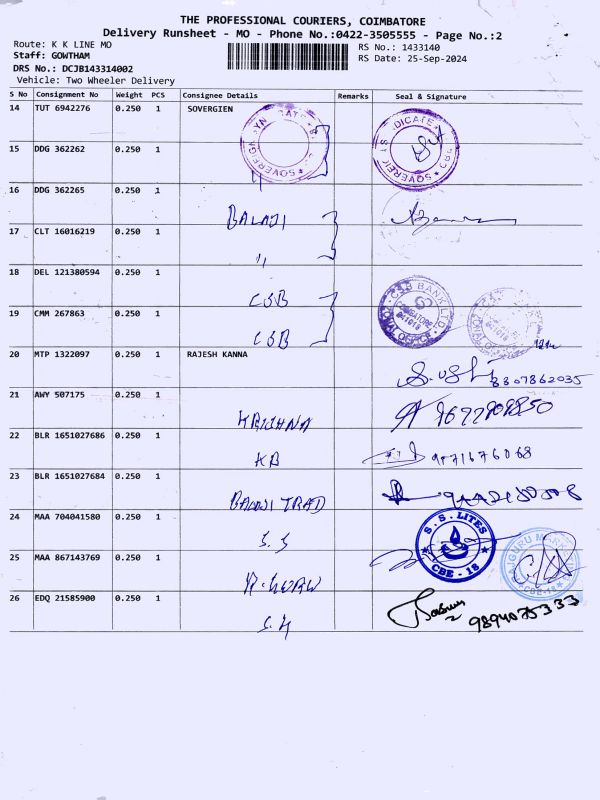 THE PROFESSIONAL COURIERS, COIMBATORE
Delivery Runsheet - MO - Phone No.:0422-3505555 - Page No.:2
Route: K K LINE MO
RS No.: 1433140
Staff: GOWTHAM
RS Date: 25-Sep-2024
DRS No.: DCJB143314002
Vehicle: Two Wheeler Delivery
S No Consignment No Weight PCS Consignee Details Remarks Seal & Signature
14 TUT 6942276 0.250 1 SOVERGIEN
15 DDG 362262 0.250 1
16 DDG 362265 0.250 1
BALAJI
17 CLT 16016219 0.250 1
"
18 DEL 121380594 0.250 1
CSB
CSB BANK LTD.
COIMBATORE
19 CMM 267863 0.250 1
CSB
20 MTP 1322097 0.250 1 RAJESH KANNA
8807862035
21 AWY 507175 0.250 1
KRISHNA
22 BLR 1651027686 0.250 1
KB
9171676068
23 BLR 1651027684 0.250 1
BALAJI TRAD
24 MAA 704041580 0.250 1
S.S
S.S. LITES
CBE - 18
25 MAA 867143769 0.250 1
RAJGURU MARK
CBE-18
26 EDQ 21585900 0.250 1
9894075333